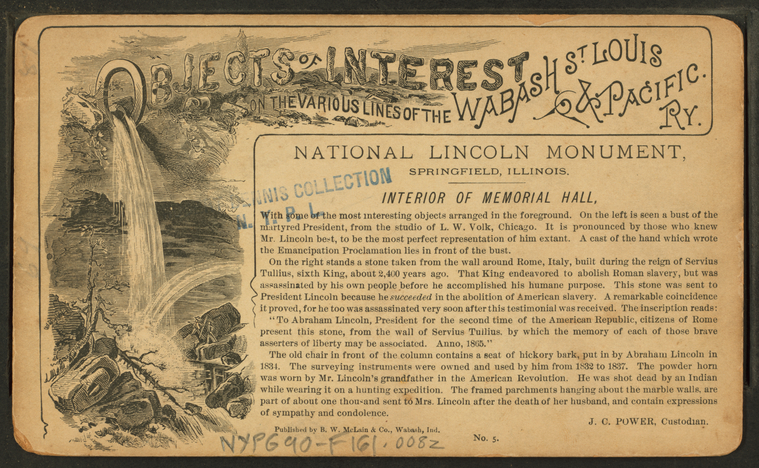 OBJECTS OF INTEREST
ON THE VARIOUS LINES OF THE WABASH ST. LOUIS
& PACIFIC.
RY.
NATIONAL LINCOLN MONUMENT,
SPRINGFIELD, ILLINOIS.
INTERIOR OF MEMORIAL HALL,
With some of the most interesting objects arranged in the foreground. On the left is seen a bust of the
martyred President, from the studio of L. W. Volk, Chicago. It is pronounced by those who knew
Mr. Lincoln best, to be the most perfect representation of him extant. A cast of the hand which wrote
the Emancipation Proclamation lies in front of the bust.
On the right stands a stone taken from the wall around Rome, Italy, built during the reign of Servius
Tullius, sixth King, about 2,400 years ago. That King endeavored to abolish Roman slavery, but was
assassinated by his own people before he accomplished his humane purpose. This stone was sent to
President Lincoln because he succeeded in the abolition of American slavery. A remarkable coincidence
it proved, for he too was assassinated very soon after this testimonial was received. The inscription reads:
"To Abraham Lincoln, President for the second time of the American Republic, citizens of Rome
present this stone, from the wall of Servius Tuilius. by which the memory of each of those brave
asserters of liberty may be associated. Anno, 1865."
The old chair in front of the column contains a seat of hickory bark, put in by Abraham Lincoln in
1834. The surveying instruments were owned and used by him from 1832 to 1837. The powder horn
was worn by Mr. Lincoln's grandfather in the American Revolution. He was shot dead by an Indian
while wearing it on a hunting expedition. The framed parchments hanging about the marble walls, are
part of about one thousand sent to Mrs. Lincoln after the death of her husband, and contain expressions
of sympathy and condolence.
J. C. POWER, Custodian.
Published by B. W. McLain & Co., Wabash, Ind.
No. 5.
NNIS COLLECTION
N. Y. P. L.
NYPG90-F161.0082